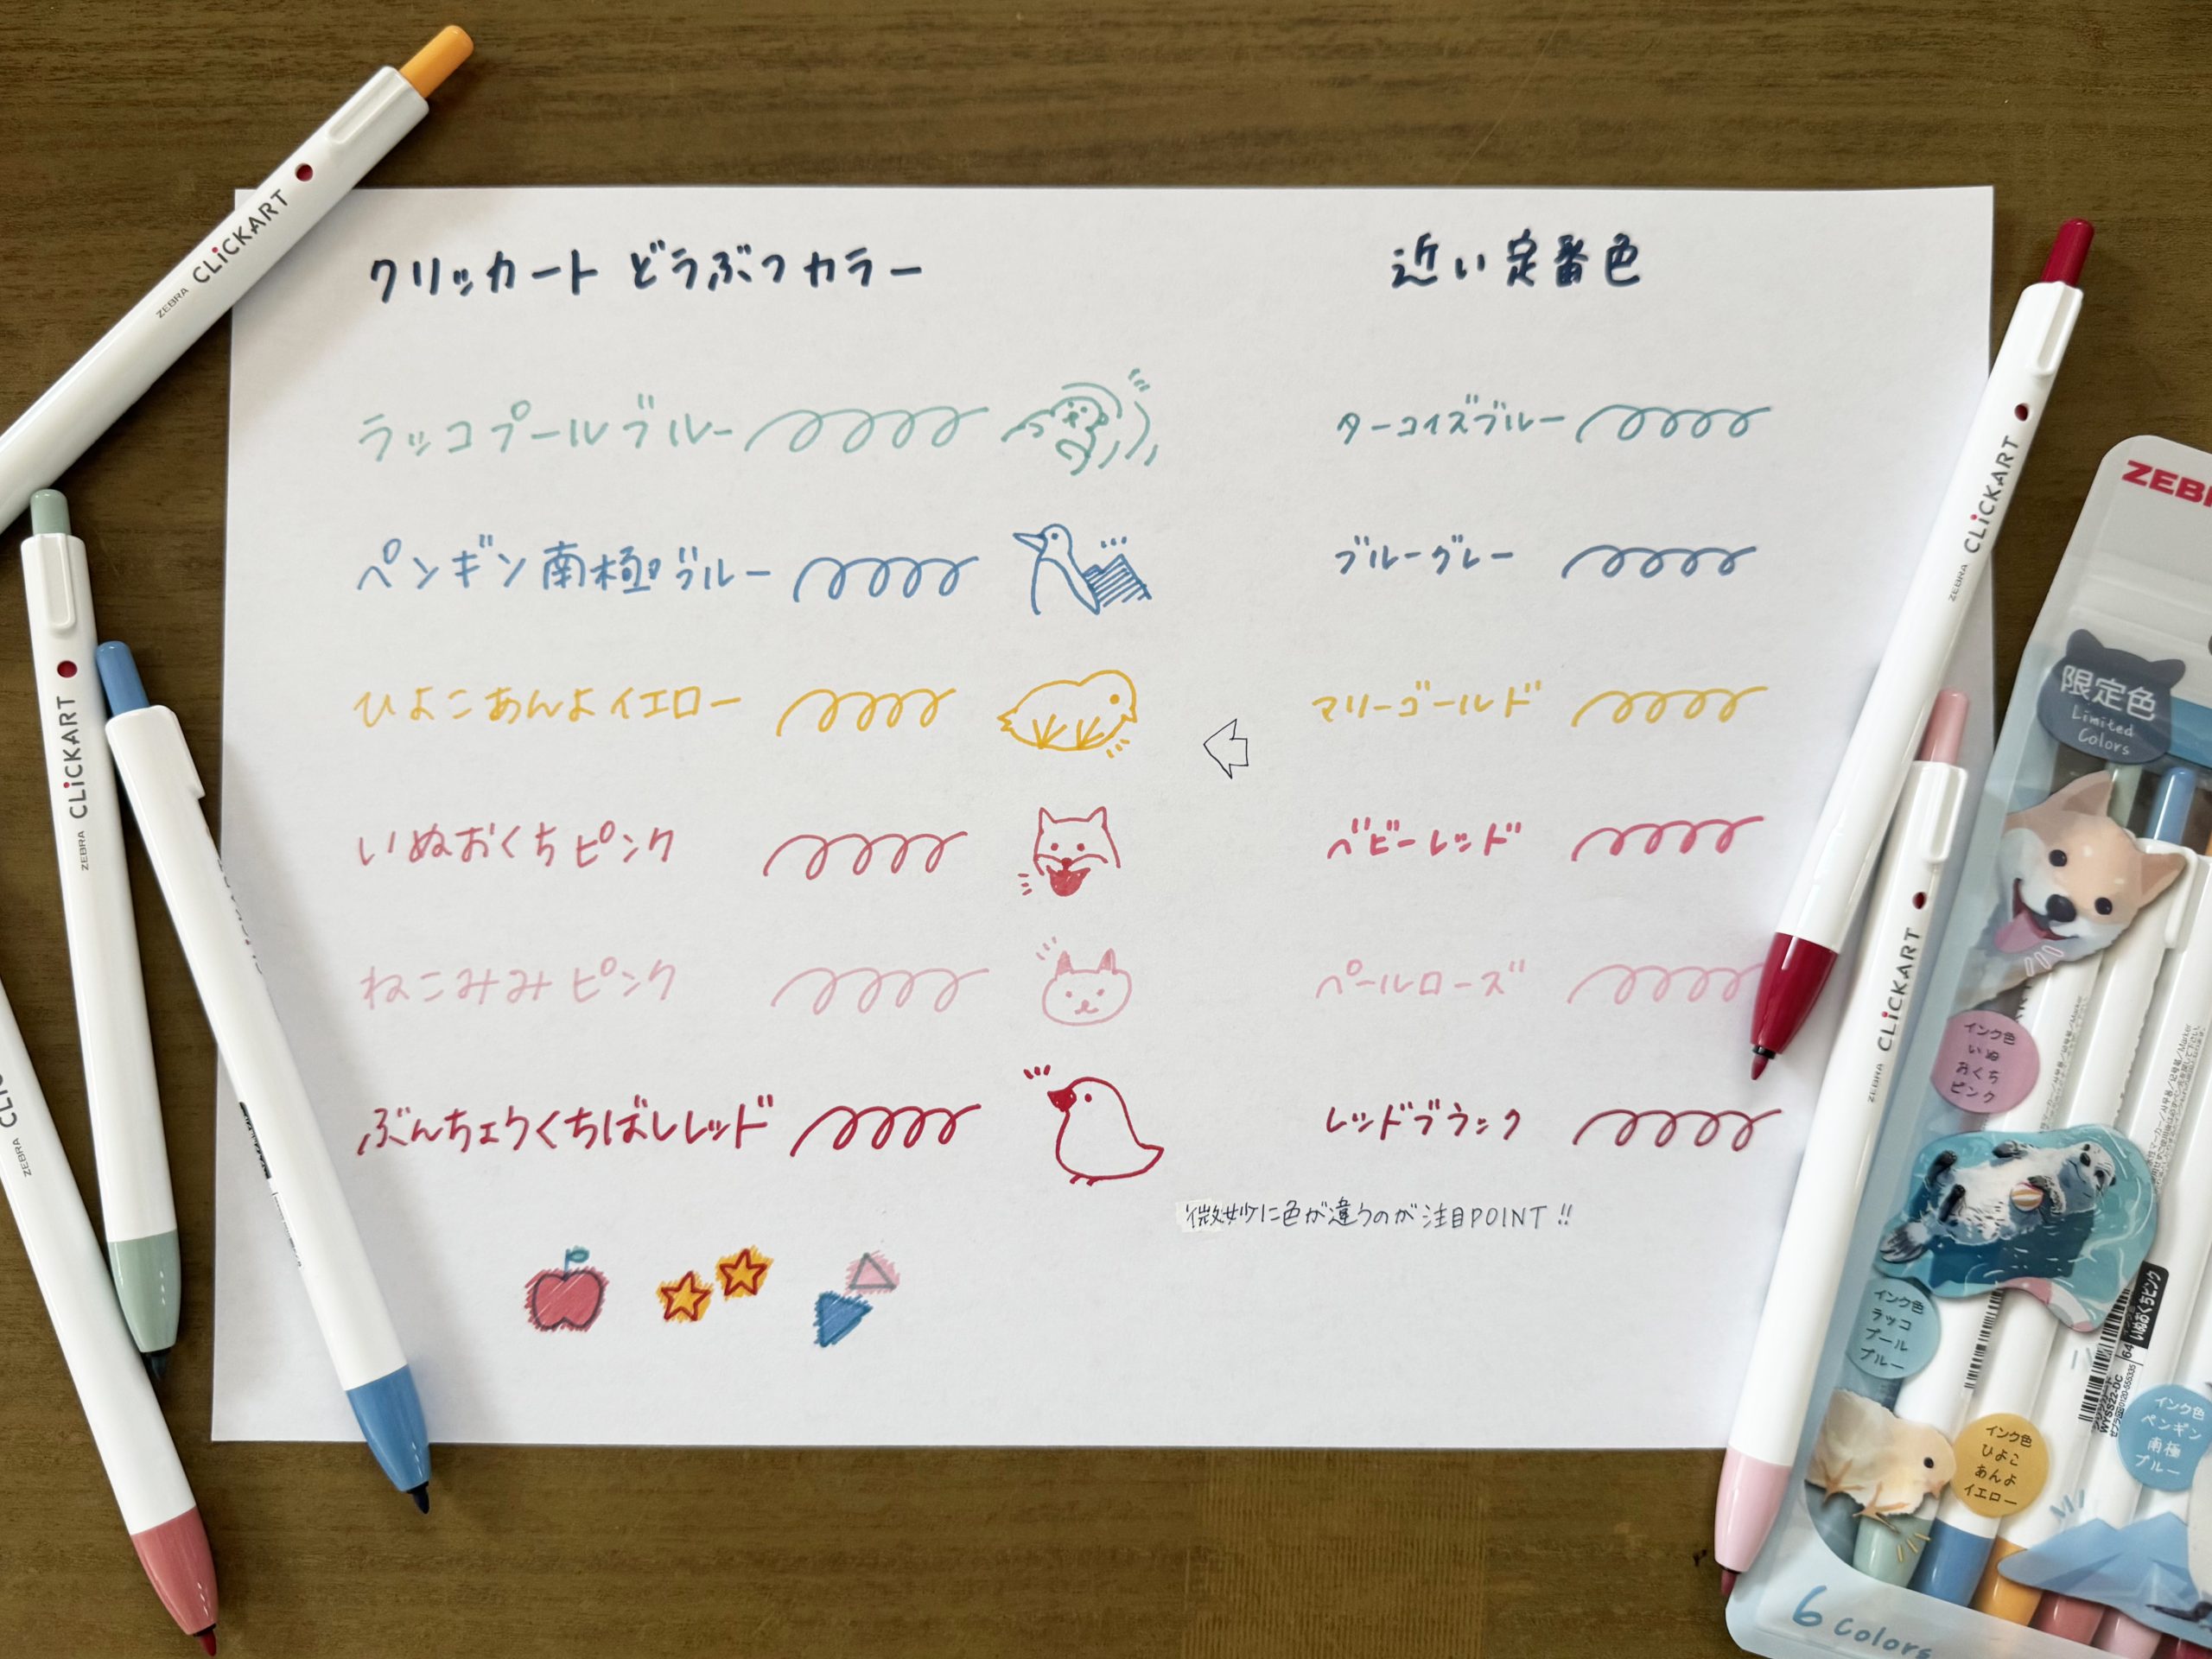 クリッカート どうぶつカラー
近い定番色
ラッコプールブルー
ターコイズブルー
ペンギン南極ブルー
ブルーグレー
ひよこあんよイエロー
マリーゴールド
いぬおくちピンク
ベビーレッド
ねこみみピンク
ペールローズ
ぶんちょうくちばしレッド
レッドブラック
微妙に色が違うのが注目POINT!!
ZEBRA CLiCKART
ZEBRA CLiCKART
ZEBRA
ZEBRA CLiCKART
ZEBRA CLiCKART
ZEBR
限定色
Limited
Colors
インク色
いぬ
おくち
ピンク
インク色
ラッコ
プール
ブルー
インク色
ひよこ
あんよ
イエロー
インク色
ペンギン
南極
ブルー
いぬおくちピンク
WYSS22-DC
6 Colors